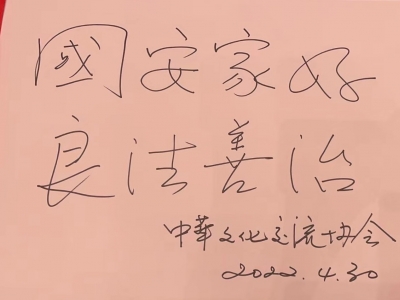 國安家好
良法善治
中華文化交流协会
2022.4.30